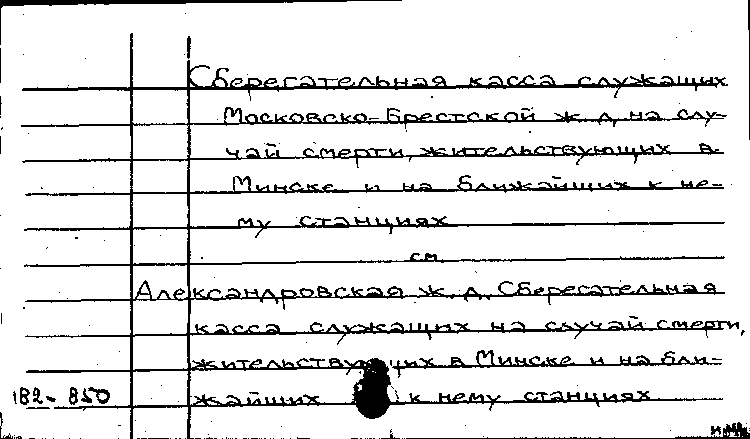 Сберегательная касса служащих
Московско-Брестской ж.д. на слу-
чай смерти, жительствующих в
Минске и на ближайших к не-
му станциях
см.
Александровская ж.д. Сберегательная
касса служащих на случай смерти,
жительствующих в Минске и на бли-
182-850 жайших к нему станциях